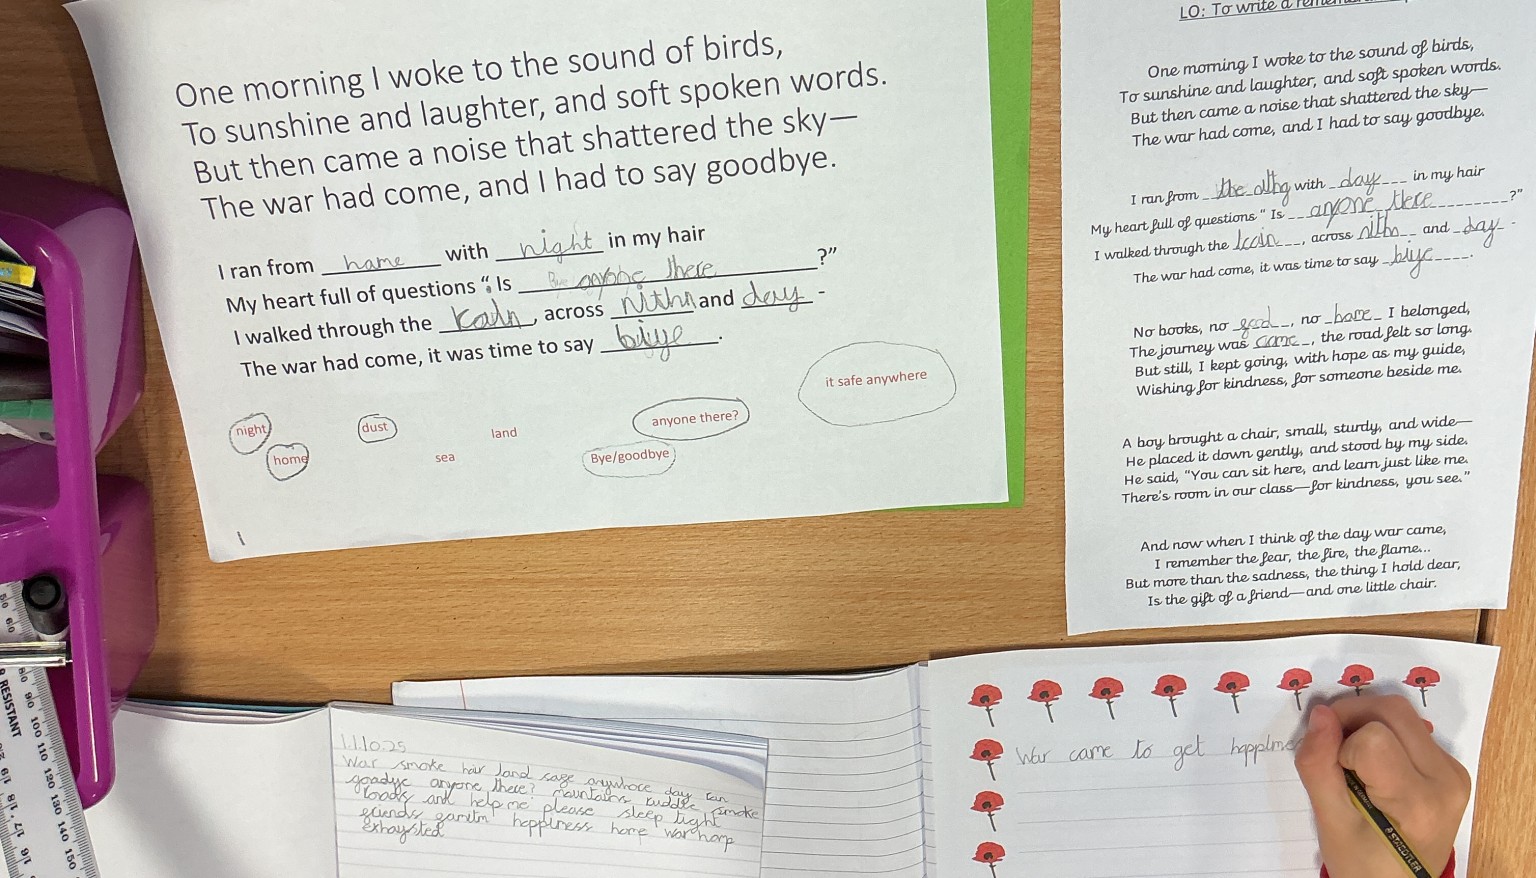 One morning I woke to the sound of birds,
To sunshine and laughter, and soft spoken words.
But then came a noise that shattered the sky—
The war had come, and I had to say goodbye.
I ran from home with night in my hair
My heart full of questions “ Is anyone there ?”
I walked through the , across and day -
The war had come, it was time to say biye .
night
dust
land
anyone there?
it safe anywhere
home
sea
Bye/goodbye
LO: To write a
One morning I woke to the sound of birds,
To sunshine and laughter, and soft spoken words.
But then came a noise that shattered the sky—
The war had come, and I had to say goodbye.
I ran from the with day in my hair
My heart full of questions “ Is anyone there ?”
I walked through the , across and day -
The war had come, it was time to say biye .
No books, no , no I belonged,
The journey was came , the road felt so long.
But still, I kept going, with hope as my guide,
Wishing for kindness, for someone beside me.
A boy brought a chair, small, sturdy, and wide—
He placed it down gently, and stood by my side.
He said, “You can sit here, and learn just like me.
There’s room in our class—for kindness, you see.”
And now when I think of the day war came,
I remember the fear, the fire, the flame...
But more than the sadness, the thing I hold dear,
Is the gift of a friend—and one little chair.
11.10.25
War smoke hair land anywhere day
goadye anyone there? mauntains smoke
and help me please sleep tight
happliness home war
exhaysted
War came to get
RESISTANT
50 60
80 90 100 110 120 130 140 150
STAEDTLER